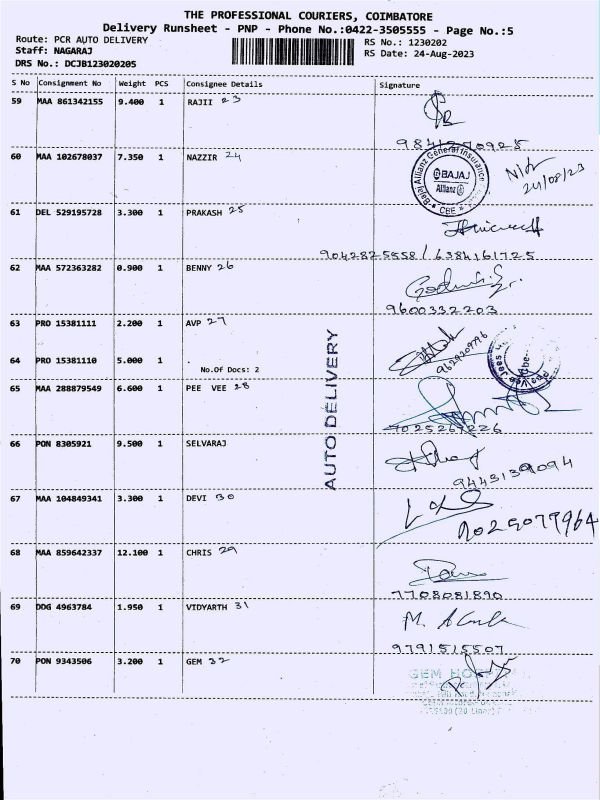 THE PROFESSIONAL COURIERS, COIMBATORE
Delivery Runsheet - PNP - Phone No.:0422-3505555 - Page No.:5
Route: PCR AUTO DELIVERY
RS No.: 1230202
Staff: NAGARAJ
RS Date: 24-Aug-2023
DRS No.: DCJB123020205
S No Consignment No Weight PCS Consignee Details Signature
59 MAA 861342155 9.400 1 RAJII 23
60 MAA 102678037 7.350 1 NAZZIR 24
Bajaj Allianz General Insurance
BAJAJ
Allianz
CBE
24/08/23
61 DEL 529195728 3.300 1 PRAKASH 25
9042825558 / 6384161725
62 MAA 572363282 0.900 1 BENNY 26
9600332203
63 PRO 15381111 2.200 1 AVP 27
9629209796
64 PRO 15381110 5.000 1
No.Of Docs: 2
65 MAA 288879549 6.600 1 PEE VEE 28
AUTO DELIVERY
66 PON 8305921 9.500 1 SELVARAJ
9443139094
67 MAA 104849341 3.300 1 DEVI 30
68 MAA 859642337 12.100 1 CHRIS 29
7708081890
69 DDG 4963784 1.950 1 VIDYARTH 31
9791515507
70 PON 9343506 3.200 1 GEM 32